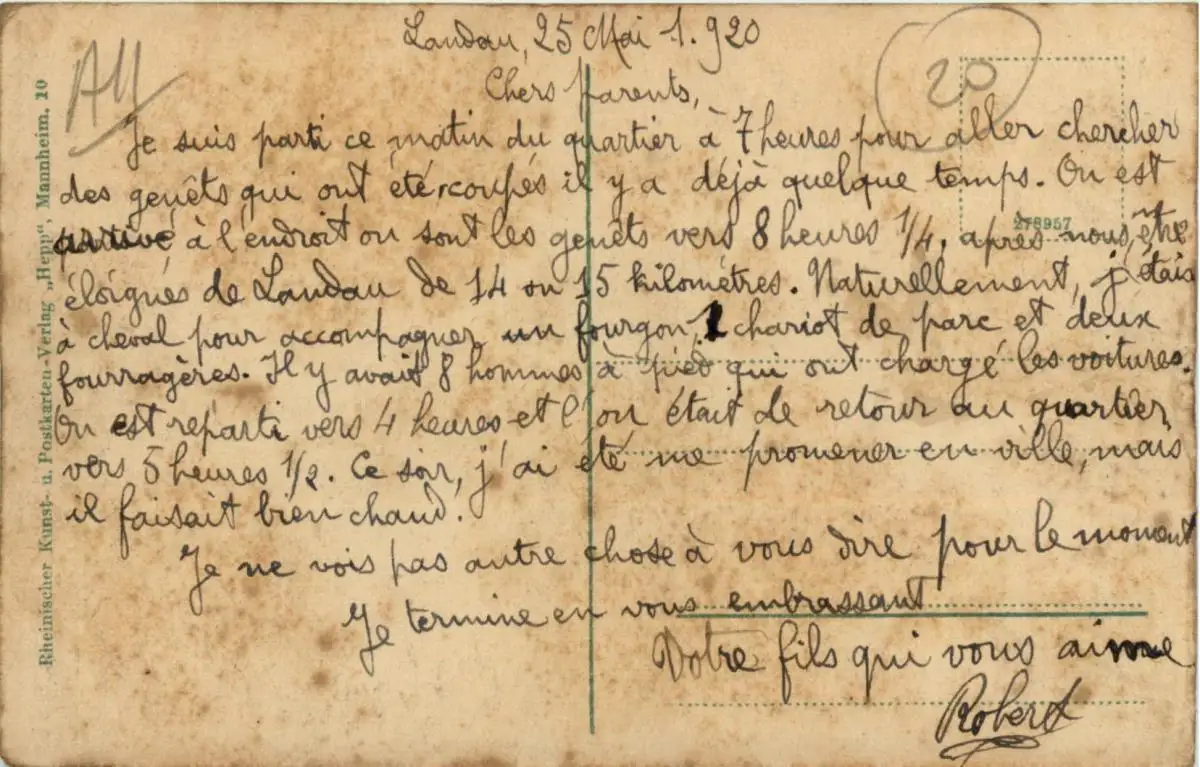 Landau, 25 Mai 1.920
20
Chers parents,
Je suis parti ce matin du quartier à 7 heures pour aller chercher
des genêts qui ont été coupés il y a déjà quelque temps. On est
arrivé à l'endroit ou sont les genêts vers 8 heures 1/4, après nous être
278957
éloignés de Landau de 14 ou 15 kilomètres. Naturellement, j'étais
à cheval pour accompagner un fourgon, 1 chariot de parc et deux
fourragères. Il y avait 8 hommes à pied qui ont chargé les voitures.
On est reparti vers 4 heures et l'on était de retour au quartier
vers 5 heures 1/2. Ce soir, j'ai été me promener en ville, mais
il faisait bien chaud.
Je ne vois pas autre chose à vous dire pour le moment
Je termine en vous embrassant
Votre fils qui vous aime
Robert
Rheinischer Kunst- u. Postkarten-Verlag „Hepp", Mannheim. 10